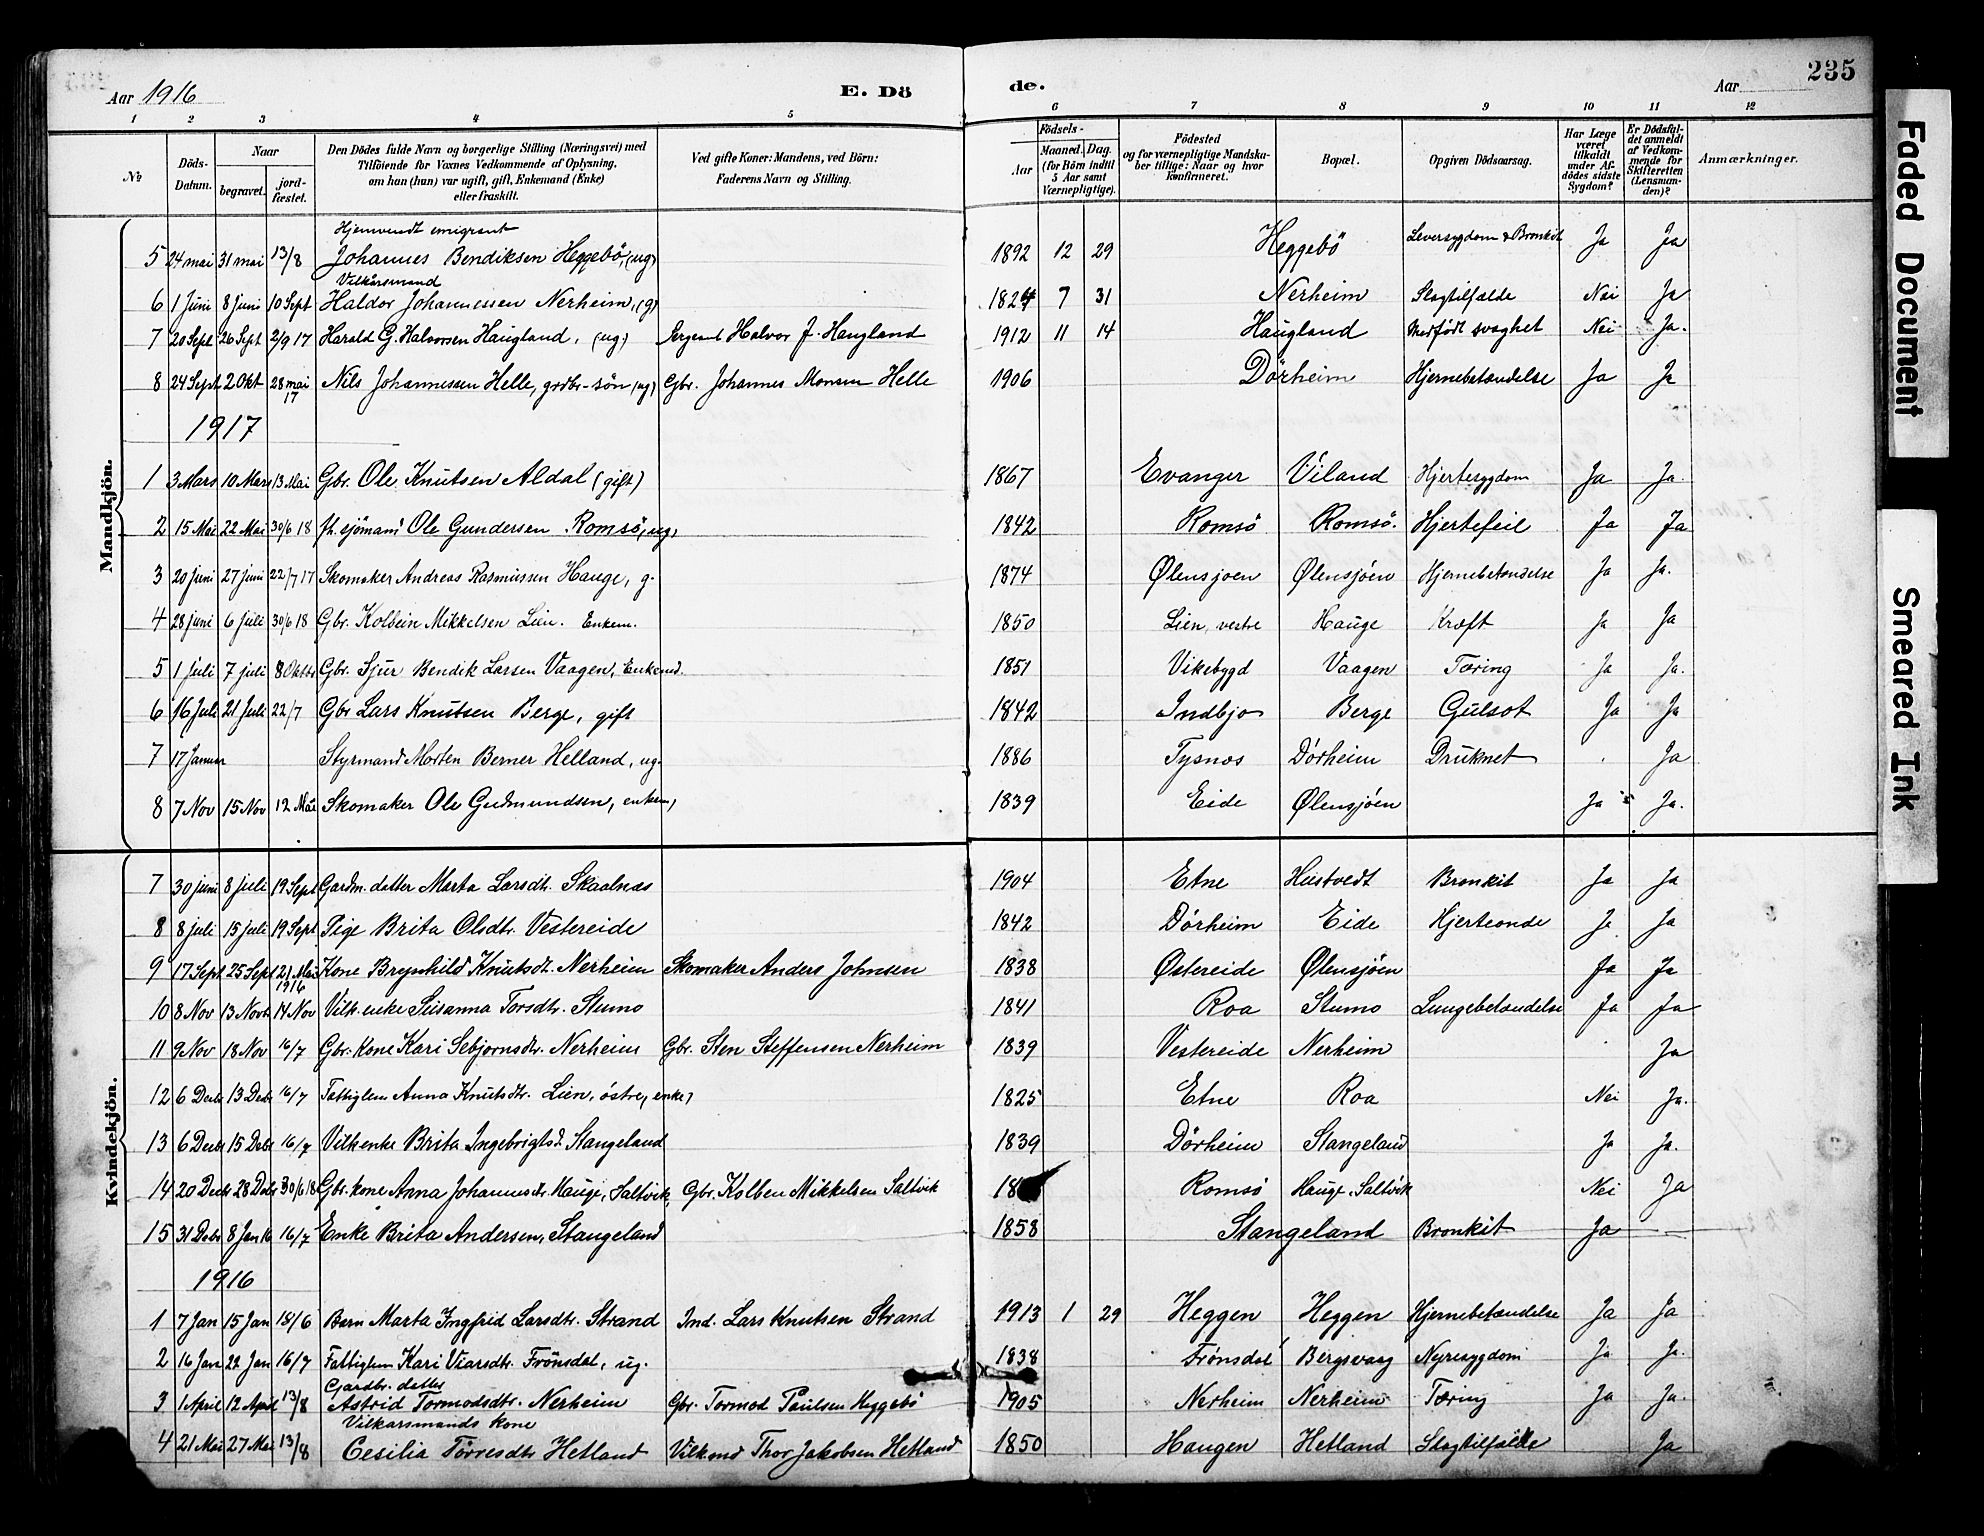 Aar 1916 E. Dö de. Aar 235
1 2 3 4 5 6 7 8 9 10 11 12
№
Döds-Datum.
Naar
begravet.
jord-fæstet.
Den Dödes fulde Navn og borgerlige Stilling (Næringsvei) med
Tilföiende for Voxnes Vedkommende af Oplysning,
om han (hun) var ugift, gift, Enkemand (Enke)
eller fraskilt.
Ved gifte Koner: Mandens, ved Börn:
Faderens Navn og Stilling.
Födsels-
Aar
Maaned. Dag.
(for Börn indtil
5 Aar samt
Værnepligtige).
Födested
og for værnepligtige Mandska-
ber tillige: Naar og hvor
konfirmeret.
Bopæl.
Opgiven Dödsaarsag.
Har Læge
været
tilkaldt
under Af-
dödes sidste
Sygdom?
Er Dödsfal-
det anmeldt
af Vedkom-
mende for
Skifteretten
(Lensman-
den)?
Anmærkninger.
Mandkjön.
Hjemvendt emigrant
5 24 mai 31 mai 13/8 Johannes Bendiksen Heggebö, (ug) 1892 12 29 Heggebö Leversygdom & Bronkit Ja Ja
Vilkårsmand
6 1 Juni 8 Juni 10 Sept Haldor Johannessen Nerheim, (g) 1824 7 31 Nerheim Slagtilfælde Nei Ja
7 20 Sept 26 Sept 2/9 17 Harald G. Halvorsen Haugland, (ug) Sergeant Halvor J. Haugland 1912 11 14 Haugland Medfödt svaghet Nei Ja.
8 24 Sept 2 Okt 28 mai 17 Nils Johannessen Helle, grdbr-sön (ug) Gbr. Johannes Monsen Helle 1906 Dörheim Hjernebetændelse Ja Ja
1917
1 3 Mars 10 Mars 13 Mai Gbr. Ole Knutsen Aldal (gift) 1867 Evanger Viland Hjertesygdom Ja Ja.
2 15 Mai 22 Mai 30/6 18 fh. sjömann Ole Gundersen Romsö, ug, 1842 Romsö Romsö. Hjertefeil Ja Ja
3 20 juni 27 juni 22/7 17 Skomaker Andreas Rasmussen Hauge, g. 1874 Ølensjoen Ølensjöen Hjernebetændelse Ja Ja.
4 28 juni 6 Juli 30/6 18 Gbr. Kolbein Mikkelsen Lien. Enkem. 1850 Lien, vestre Hauge Kræft Ja Ja
5 1 Juli 7 juli 8 Oktbr Gbr. Sjur Bendik Larsen Vaagen, Enkemd. 1851 Vikebygd Vaagen Tæring Ja Ja.
6 16 Juli 21 Juli 22/7 Gbr Lars Knutsen Berge, gift 1842 Indbjo Berge Gulsot Ja Ja
7 17 Januar Styrmand Morten Berner Helland, ug. 1886 Tysnæs Dörheim Druknet Ja
8 7 Nov 15 Nov 12 Mai Skomaker Ole Gudmundsen, enkem, 1839 Eide Ølensjöen Ja Ja.
Kvindekjön.
7 30 juni 8 juli 19 Sept Gardm. datter Marta Larsdtr. Skaalnæs 1904 Etne Hustvedt Bronkit Ja Ja
8 8 juli 15 juli 19 Sept Pige Brita Olsdtr. Vestereide 1842 Dörheim Eide Hjerteonde Ja Ja
9 17 Sept 25 Sept 21 Mai 1916 Kone Brynhild Knutsdt. Nerheim Skomaker Anders Johnsen 1838 Østereide Ølensjöen Ja Ja
10 8 Nov 13 Novb 14 Nov Vilk. enke Susanna Torsdtr. Stumo 1841 Roa Stumo Lungebetændelse Ja Ja
11 9 Nov 18 Nov 16/7 Gbr. Kone Kari Sebjørnsdtr. Nerheim Gbr. Sten Steffensen Nerheim 1839 Vestereide Nerheim Ja
12 6 Decbr 13 Decbr 16/7 Fattiglem Anna Knutsdtr. Lien, östre, enke, 1825 Etne Roa Nei Ja.
13 6 Decbr 15 Decbr 16/7 Vilkenke Brita Ingebrigtsd. Stangeland 1839 Dörheim Stangeland Ja Ja.
14 20 Decbr 28 Decbr 30/6 18 Gbr. kone Anna Johannesdtr. Hauge, Saltvik, Gbr. Kolben Mikkelsen Saltvik Romsö Hauge. Saltvik Nei Ja
15 31 Decbr 8 Jan 16 16/7 Enke Brita Andersen, Stangeland 1858 Stangeland Bronkit Ja —
1916
1 7 Jan 15 Jan 18/6 Barn Marta Ingfrid Larsdtr. Strand Ind. Lars Knutsen Strand 1913 1 29 Heggen Heggen Hjernebetændelse Ja Ja
2 16 Jan 22 Jan 16/7 Fattiglem Kari Viarsdtr. Frönsdal, ug. 1838 Frönsdal Bergsvaag Nyresygdom Ja Ja.
Gardbr. datter
3 1 April 12 April 13/8 Astrid Tormodsdtr. Nerheim Gbr. Tormod Paulsen Heggebö 1905 Nerheim Nerheim Tæring Ja Ja.
Vilkarsmands kone
4 21 Mai 27 Mai 13/8 Cesilia Törresdtr Hetland Vilk.md Thor Jakobsen Hetland 1850 Haugen Hetland Slagtilfælde Ja
Faded Document
Smeared Ink